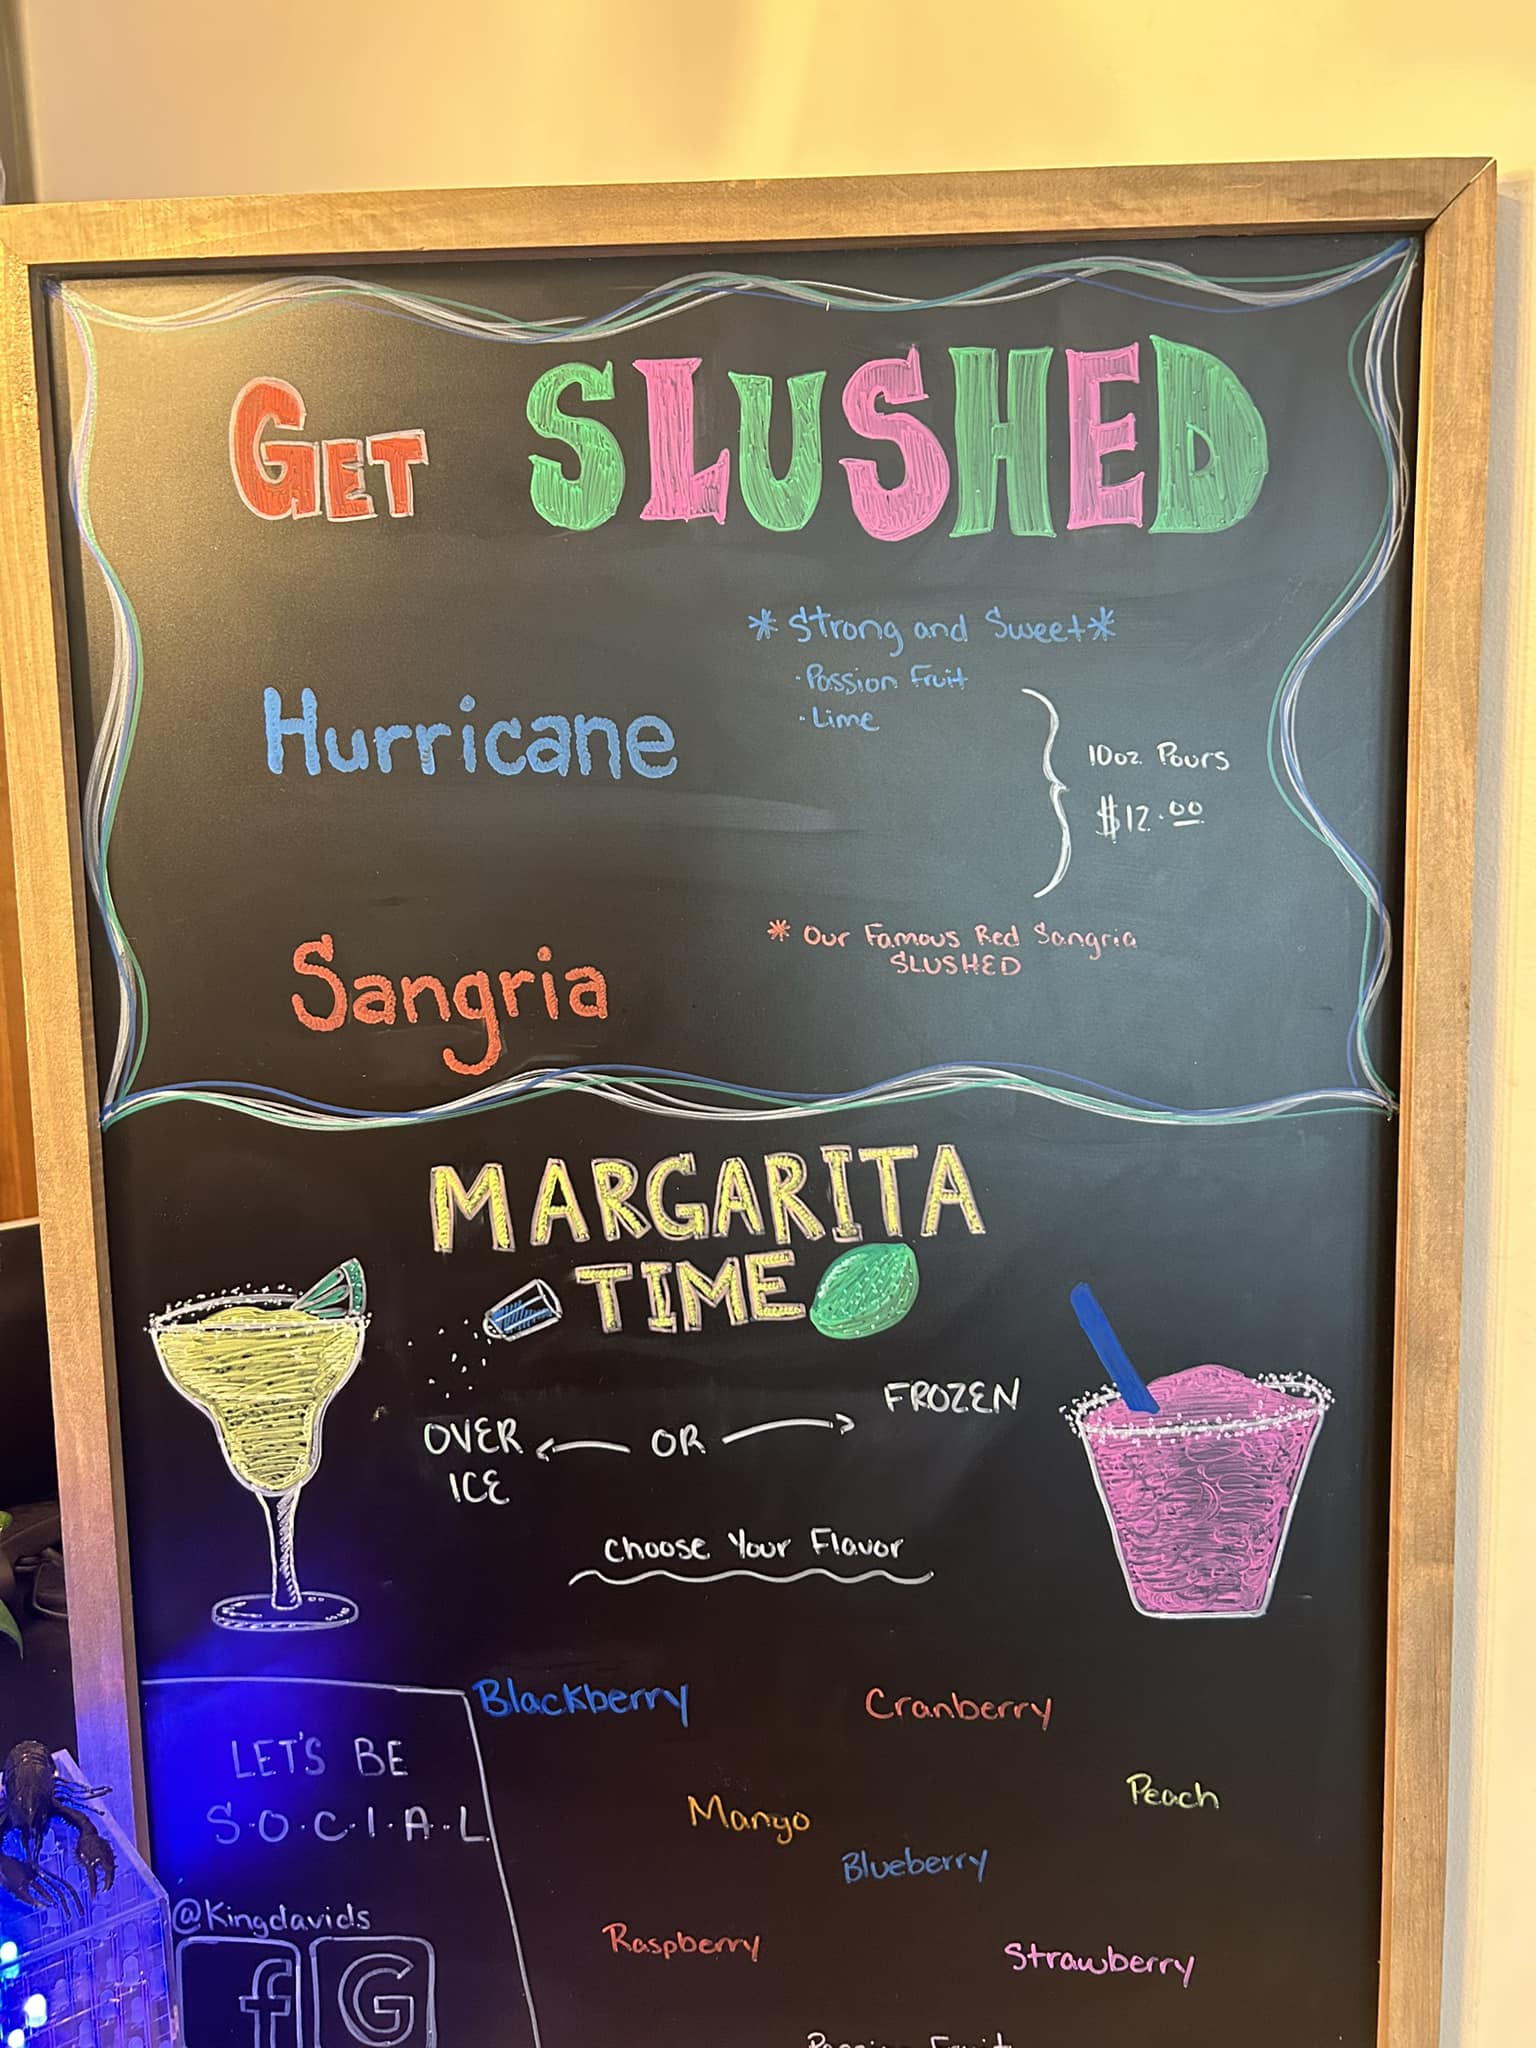 GET SLUSHED
Hurricane
* Strong and Sweet *
· Passion Fruit
· Lime
10oz Pours
$12.00
Sangria
* Our Famous Red Sangria
SLUSHED
MARGARITA
TIME
OVER
ICE
OR
FROZEN
Choose Your Flavor
Blackberry
Cranberry
Peach
Mango
Blueberry
Raspberry
Strawberry
Passion Fruit
LET'S BE
S·O·C·I·A·L
@Kingdavids
f
G